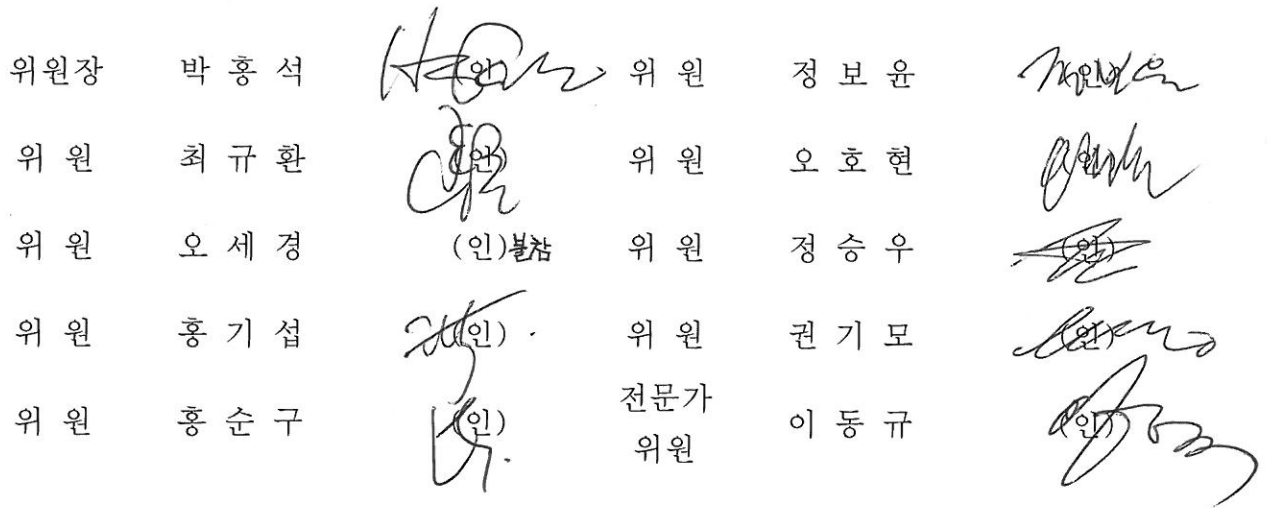 위원장 박 홍 석 (인) 위 원 정 보 윤 (인)
위 원 최 규 환 (인) 위 원 오 호 현 (인)
위 원 오 세 경 (인)불참 위 원 정 승 우 (인)
위 원 홍 기 섭 (인) 위 원 권 기 모 (인)
위 원 홍 순 구 (인) 전문가 위원 이 동 규 (인)